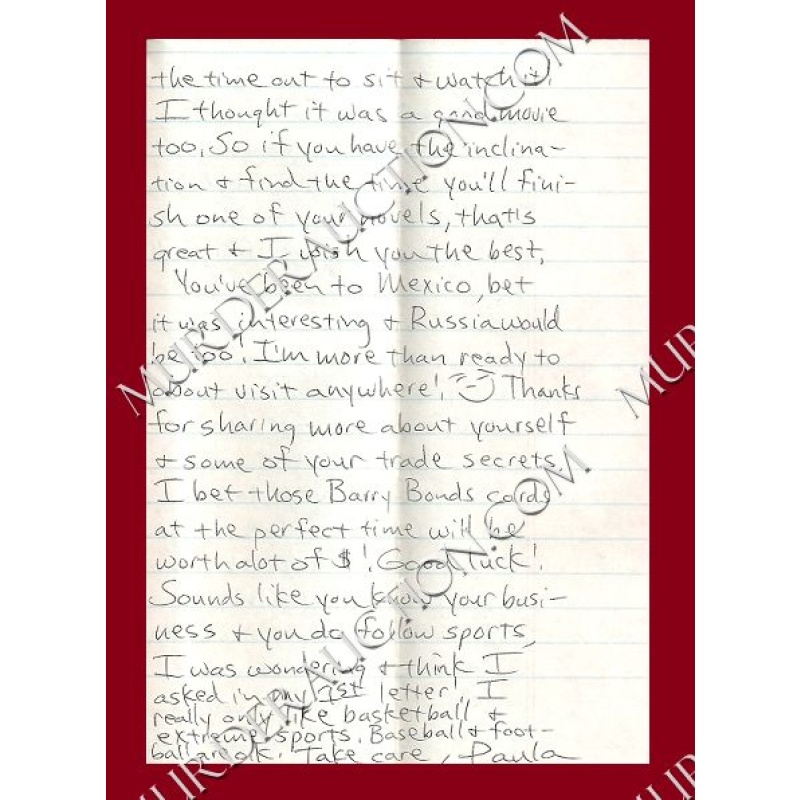 the time out to sit & watch it!
I thought it was a good movie
too. So if you have the inclina-
tion & find the time you'll fini-
sh one of your novels, that's
great & I wish you the best.
You've been to Mexico, bet
it was interesting & Russia would
be too! I'm more than ready to
about visit anywhere! Thanks
for sharing more about yourself
& some of your trade secrets.
I bet those Barry Bonds cards
at the perfect time will be
worth alot of $! Good luck!
Sounds like you know your busi-
ness & you do follow sports,
I was wondering & think I
asked in my 1st letter! I
really only like basketball &
extreme sports. Baseball & foot-
ball are ok. Take care, Paula
MURDERAUCTION.COM
MURDERAUCTION.COM
MUR
MUR